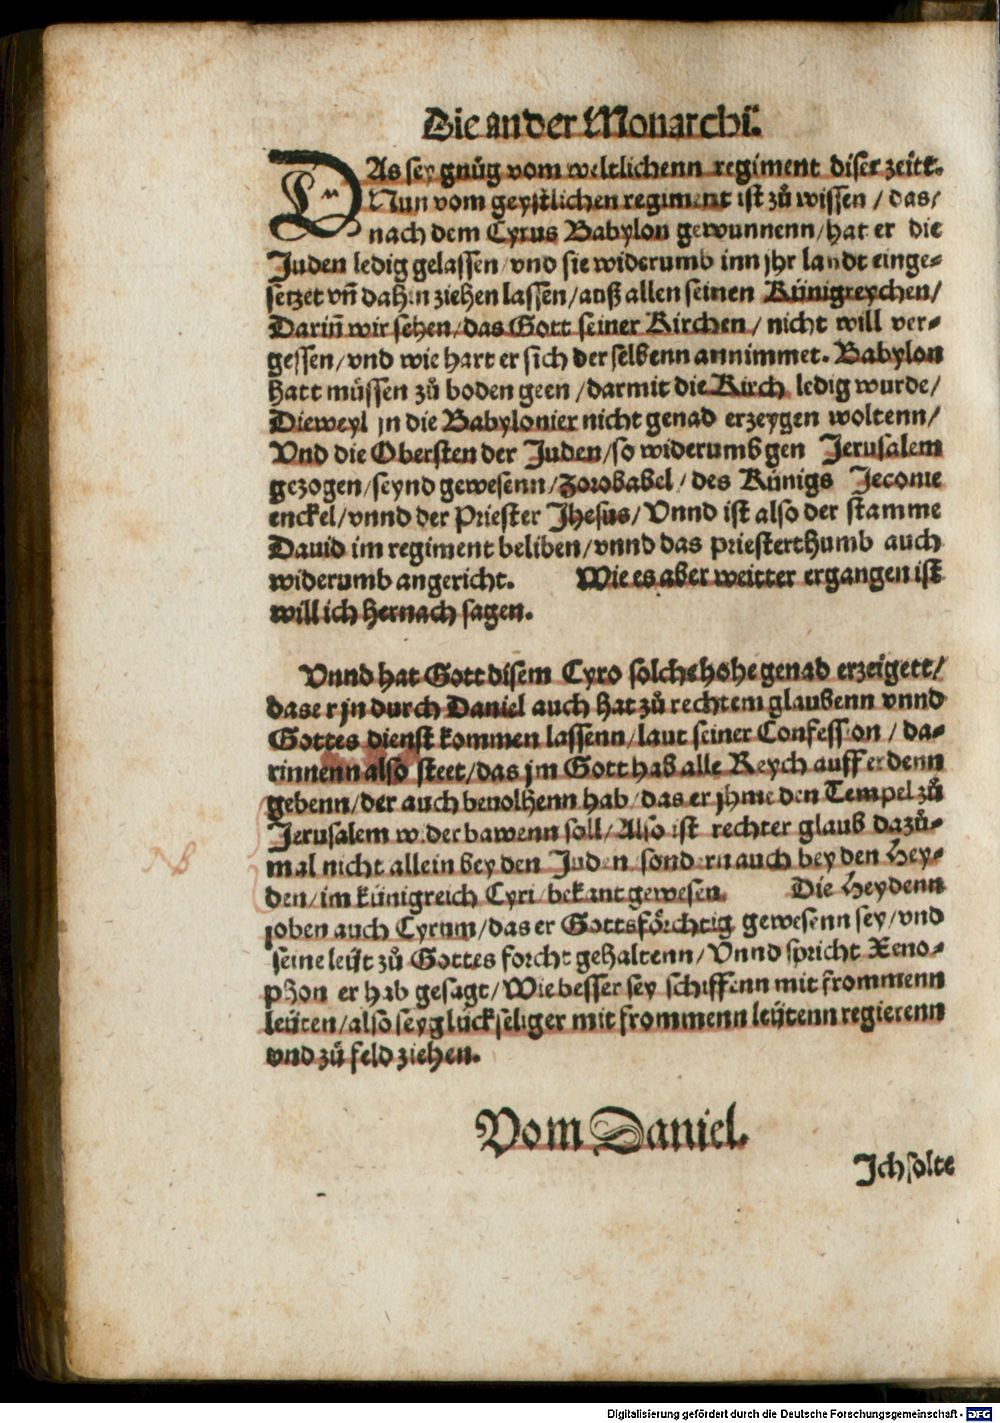 Die ander Monarchi.
DAs sey gnůg vom weltlichenn regiment diser zeitt.
Nun vom geystlichen regiment ist zů wissen / das/
nach dem Cyrus Babylon gewunnenn/hat er die
Juden ledig gelassen/vnd sie widerumb inn jhr landt einge-
setzet vñ dahin ziehen lassen/auß allen seinen Künigreychen/
Dariñ wir sehen/das Gott seiner Kirchen/ nicht will ver-
gessen/vnd wie hart er sich derselbenn annimmet. Babylon
hatt müssen zů boden geen/darmit die Kirch ledig wurde/
Dieweyl jn die Babylonier nicht genad erzeygen woltenn/
Vnd die Obersten der Juden/so widerumb gen Jerusalem
gezogen/seynd gewesenn/Zorobabel/ des Künigs Jeconie
enckel/vnnd der Priester Jhesus/Vnnd ist also der stamme
Dauid im regiment beliben/vnnd das priesterthumb auch
widerumb angericht. Wie es aber weitter ergangen ist
will ich hernach sagen.
Vnnd hat Gott disem Cyro solche hohe genad erzeigett/
das er jn durch Daniel auch hat zů rechtem glaubenn vnnd
Gottes dienst kommen lassenn/laut seiner Confession / da-
rinnenn also steet/das jm Gott hab alle Reych auff erdenn
gebenn/der auch beuolhenn hab/das er jhme den Tempel zů
Jerusalem widerbawenn soll/Also ist rechter glaub dazů-
mal nicht allein bey den Juden sondern auch bey den Hey-
den/im künigreich Cyri/bekant gewesen. Die Heydenn
loben auch Cyrum/das er Gottsförchtig gewesenn sey/vnd
seine leüt zů Gottes forcht gehaltenn/Vnnd spricht Xeno-
phon er hab gesagt/Wie besser sey schiffenn mit frommenn
leüten/also sey glückseliger mit frommenn leütenn regierenn
vnd zů feld ziehen.
NB
Vom Daniel.
Jch solte
Digitalisierung gefördert durch die Deutsche Forschungsgemeinschaft - DFG